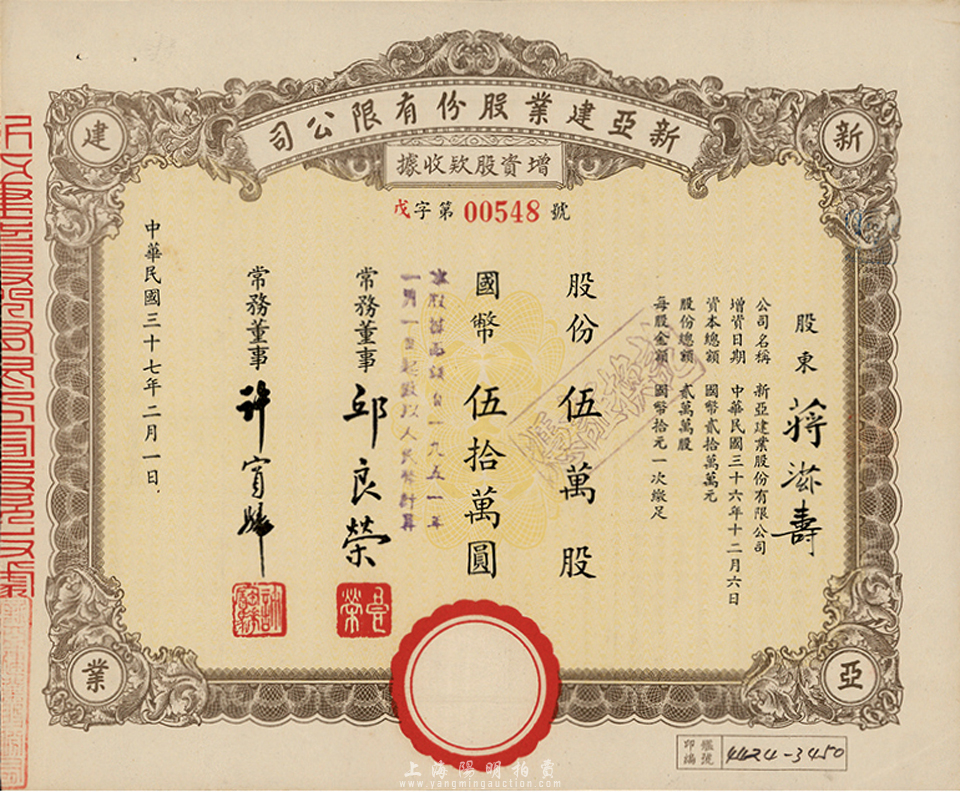 新亞建業股份有限公司
增資股欵收據
戊字第00548號
新
亞
建
業
股東 蔣滋壽
公司名稱 新亞建業股份有限公司
增資日期 中華民國三十六年十二月六日
資本總額 國幣貳拾萬萬元
股份總額 貳萬萬股
每股金額 國幣拾元一次繳足
股份伍萬股
國幣伍拾萬圓
常務董事 邱良榮
常務董事 許
中華民國三十七年二月一日
印鑑號編 4424-3450
上海陽明拍賣
www.yangmingauction.com